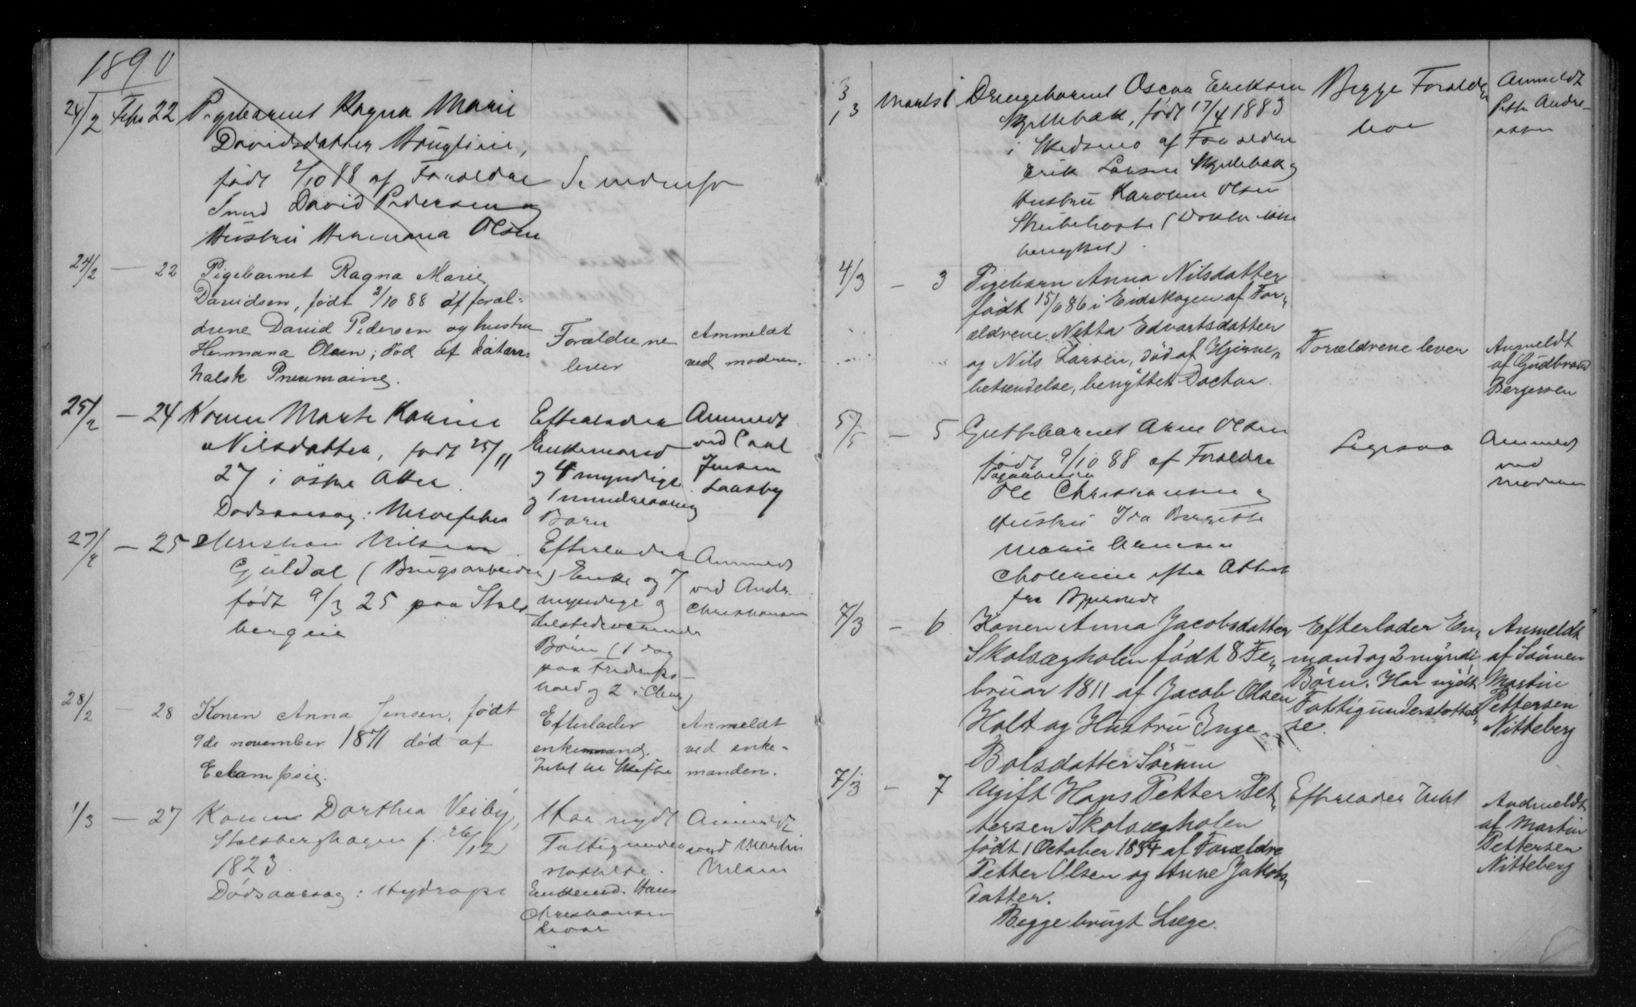 1890
24/2 Febr 22 Pigebarnet Ragna Marie
Davidsdatter
født 2/10 88 af Forældre
David Pedersen og
Hustru Hermana Olsen
24/2 — 22 Pigebarnet Ragna Marie
Davidsen, født 2/10 88 af foræl-
drene David Pedersen og hustru
Hermana Olsen; død af katarr-
halsk Pneumoing.
Forældrene
lever
Anmeldt
ved modren.
25/2 — 24 Konen Marte Karine
Nilsdatter, født 25/11
27 i østre Atter.
Dødsaarsag: Nervefeber
Efterlader
Enkemand
og 4 myndige
og 1 mindreaarig
Barn
Anmeldt
ved Carl
Jensen
Laasby
27/2 — 25 Christian Nilsen
Guldal (Brugsarbeider)
født 9/3 25 paa Stals-
bergeie
Efterlader
Enke og 7
myndige og
tilstedeværende
Børn (1 dog
paa Fredriks-
hald og 2 i
Anmeldt
ved Andr.
Christiansen
28/2 — 28 Konen Anna Jensen, født
9de november 1871 død af
Eclampsia.
Efterlader
enkemand,
Anmeldt
ved enke-
manden.
1/3 — 27 Konen Dorthea Veiby,
Stalsberghagen f. 26/12
1823
Dødsaarsag: Hydrops
Har nydt
Fattigunder-
støttelse.
Enkemd. Hans
Christiansen
lever
Anmeldt
ved Martin
Nilsen
3/3 Marts 1 Drengebarnet Oscar Eriksen
Skjellebæk, født 17/4 1883
i Skedsmo af Forældre
Erik Larsen Skjellebæk og
Hustru Karoline Olsen
(Doktor ikke
benyttet)
Begge Forældre
lever
Anmeldt
Petter Andre-
assen
4/3 — 3 Pigebarn Anna Nilsdatter
født 15/6 86 i Eidskogen af For-
ældrene Netta Edvartsdatter
og Nils Larsen, død af Hjerne-
betændelse, benyttet Doctor.
Forældrene lever
Anmeldt
af Gudbrand
Bergersen
5/ — 5 Guttebarnet Arne Olsen
født 9/10 88 af Forældre
Ole Christiansen og
Hustru Ida Birgitte
Marie
Cholerine efter Attest
fra
Ligesaa
Anmeldt
ved
moderen
7/3 — 6 Konen Anna Jacobsdatter
Skolsægholen født 8 Fe-
bruar 1811 af Jacob Olsen
Holt og Hustru Inge
Bolsdatter
Efterlader En-
mand og 2 myndi
Børn. Har nydt
Fattigunderstøttel-
se.
Anmeldt
af
Martin
Pettersen
Nitteberg
7/3 — 7 Ugift Hans Petter Pet-
tersen Skolsægholen
født 1 October 1854 af Forældre
Petter Olsen og Anne Jakobs-
datter.
Begge brugt Læge.
Efterlader Intet
Andmeldt
af Martin
Pettersen
Nitteberg